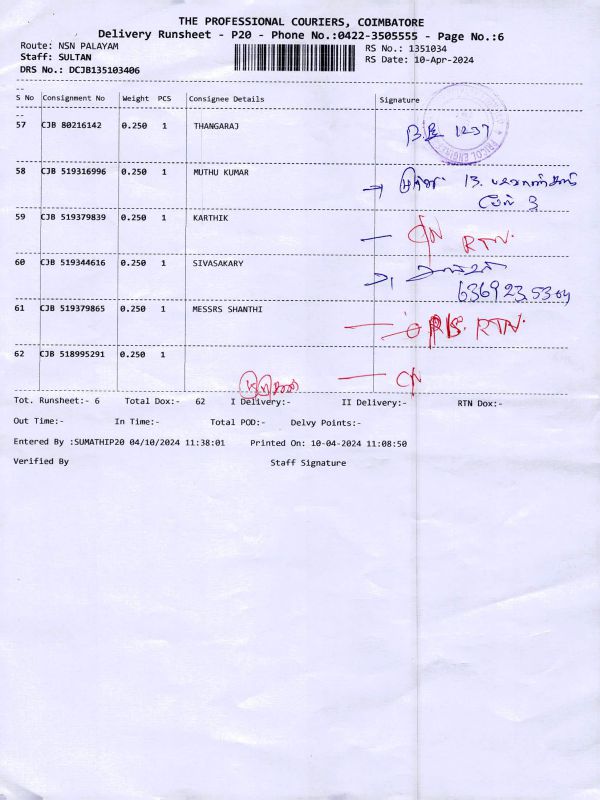 THE PROFESSIONAL COURIERS, COIMBATORE
Delivery Runsheet - P20 - Phone No.:0422-3505555 - Page No.:6
Route: NSN PALAYAM
RS No.: 1351034
Staff: SULTAN
RS Date: 10-Apr-2024
DRS No.: DCJB135103406
S No Consignment No Weight PCS Consignee Details Signature
57 CJB 80216142 0.250 1 THANGARAJ
1237
58 CJB 519316996 0.250 1 MUTHU KUMAR
13.
59 CJB 519379839 0.250 1 KARTHIK
CN RTN.
60 CJB 519344616 0.250 1 SIVASAKARY
61 CJB 519379865 0.250 1 MESSRS SHANTHI
RTN.
62 CJB 518995291 0.250 1
CN
Tot. Runsheet:- 6 Total Dox:- 62 I Delivery:- II Delivery:- RTN Dox:-
Out Time:- In Time:- Total POD:- Delvy Points:-
Entered By :SUMATHIP20 04/10/2024 11:38:01 Printed On: 10-04-2024 11:08:50
Verified By Staff Signature